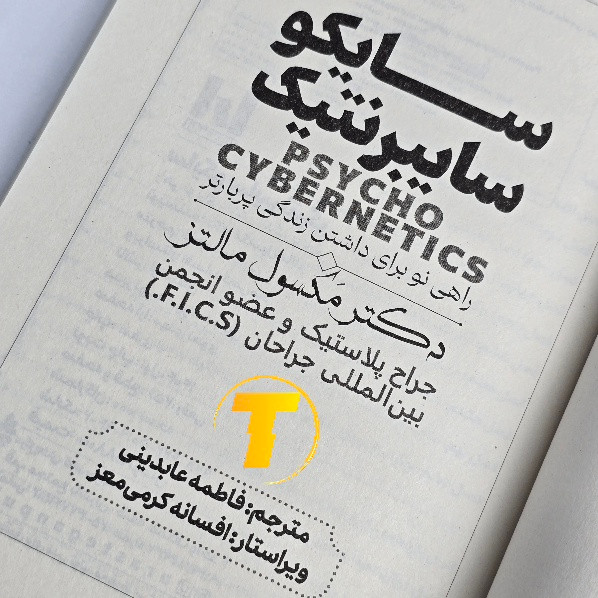 سایکو
سایبرنتیک
PSYCHO
CYBERNETICS
راهی نو برای داشتن زندگی پربارتر
دکتر مکسول مالتز
جراح پلاستیک و عضو انجمن
بین‌المللی جراحان (F.I.C.S.)
T
مترجم: فاطمه عابدینی
ویراستار: افسانه کرمی‌معز